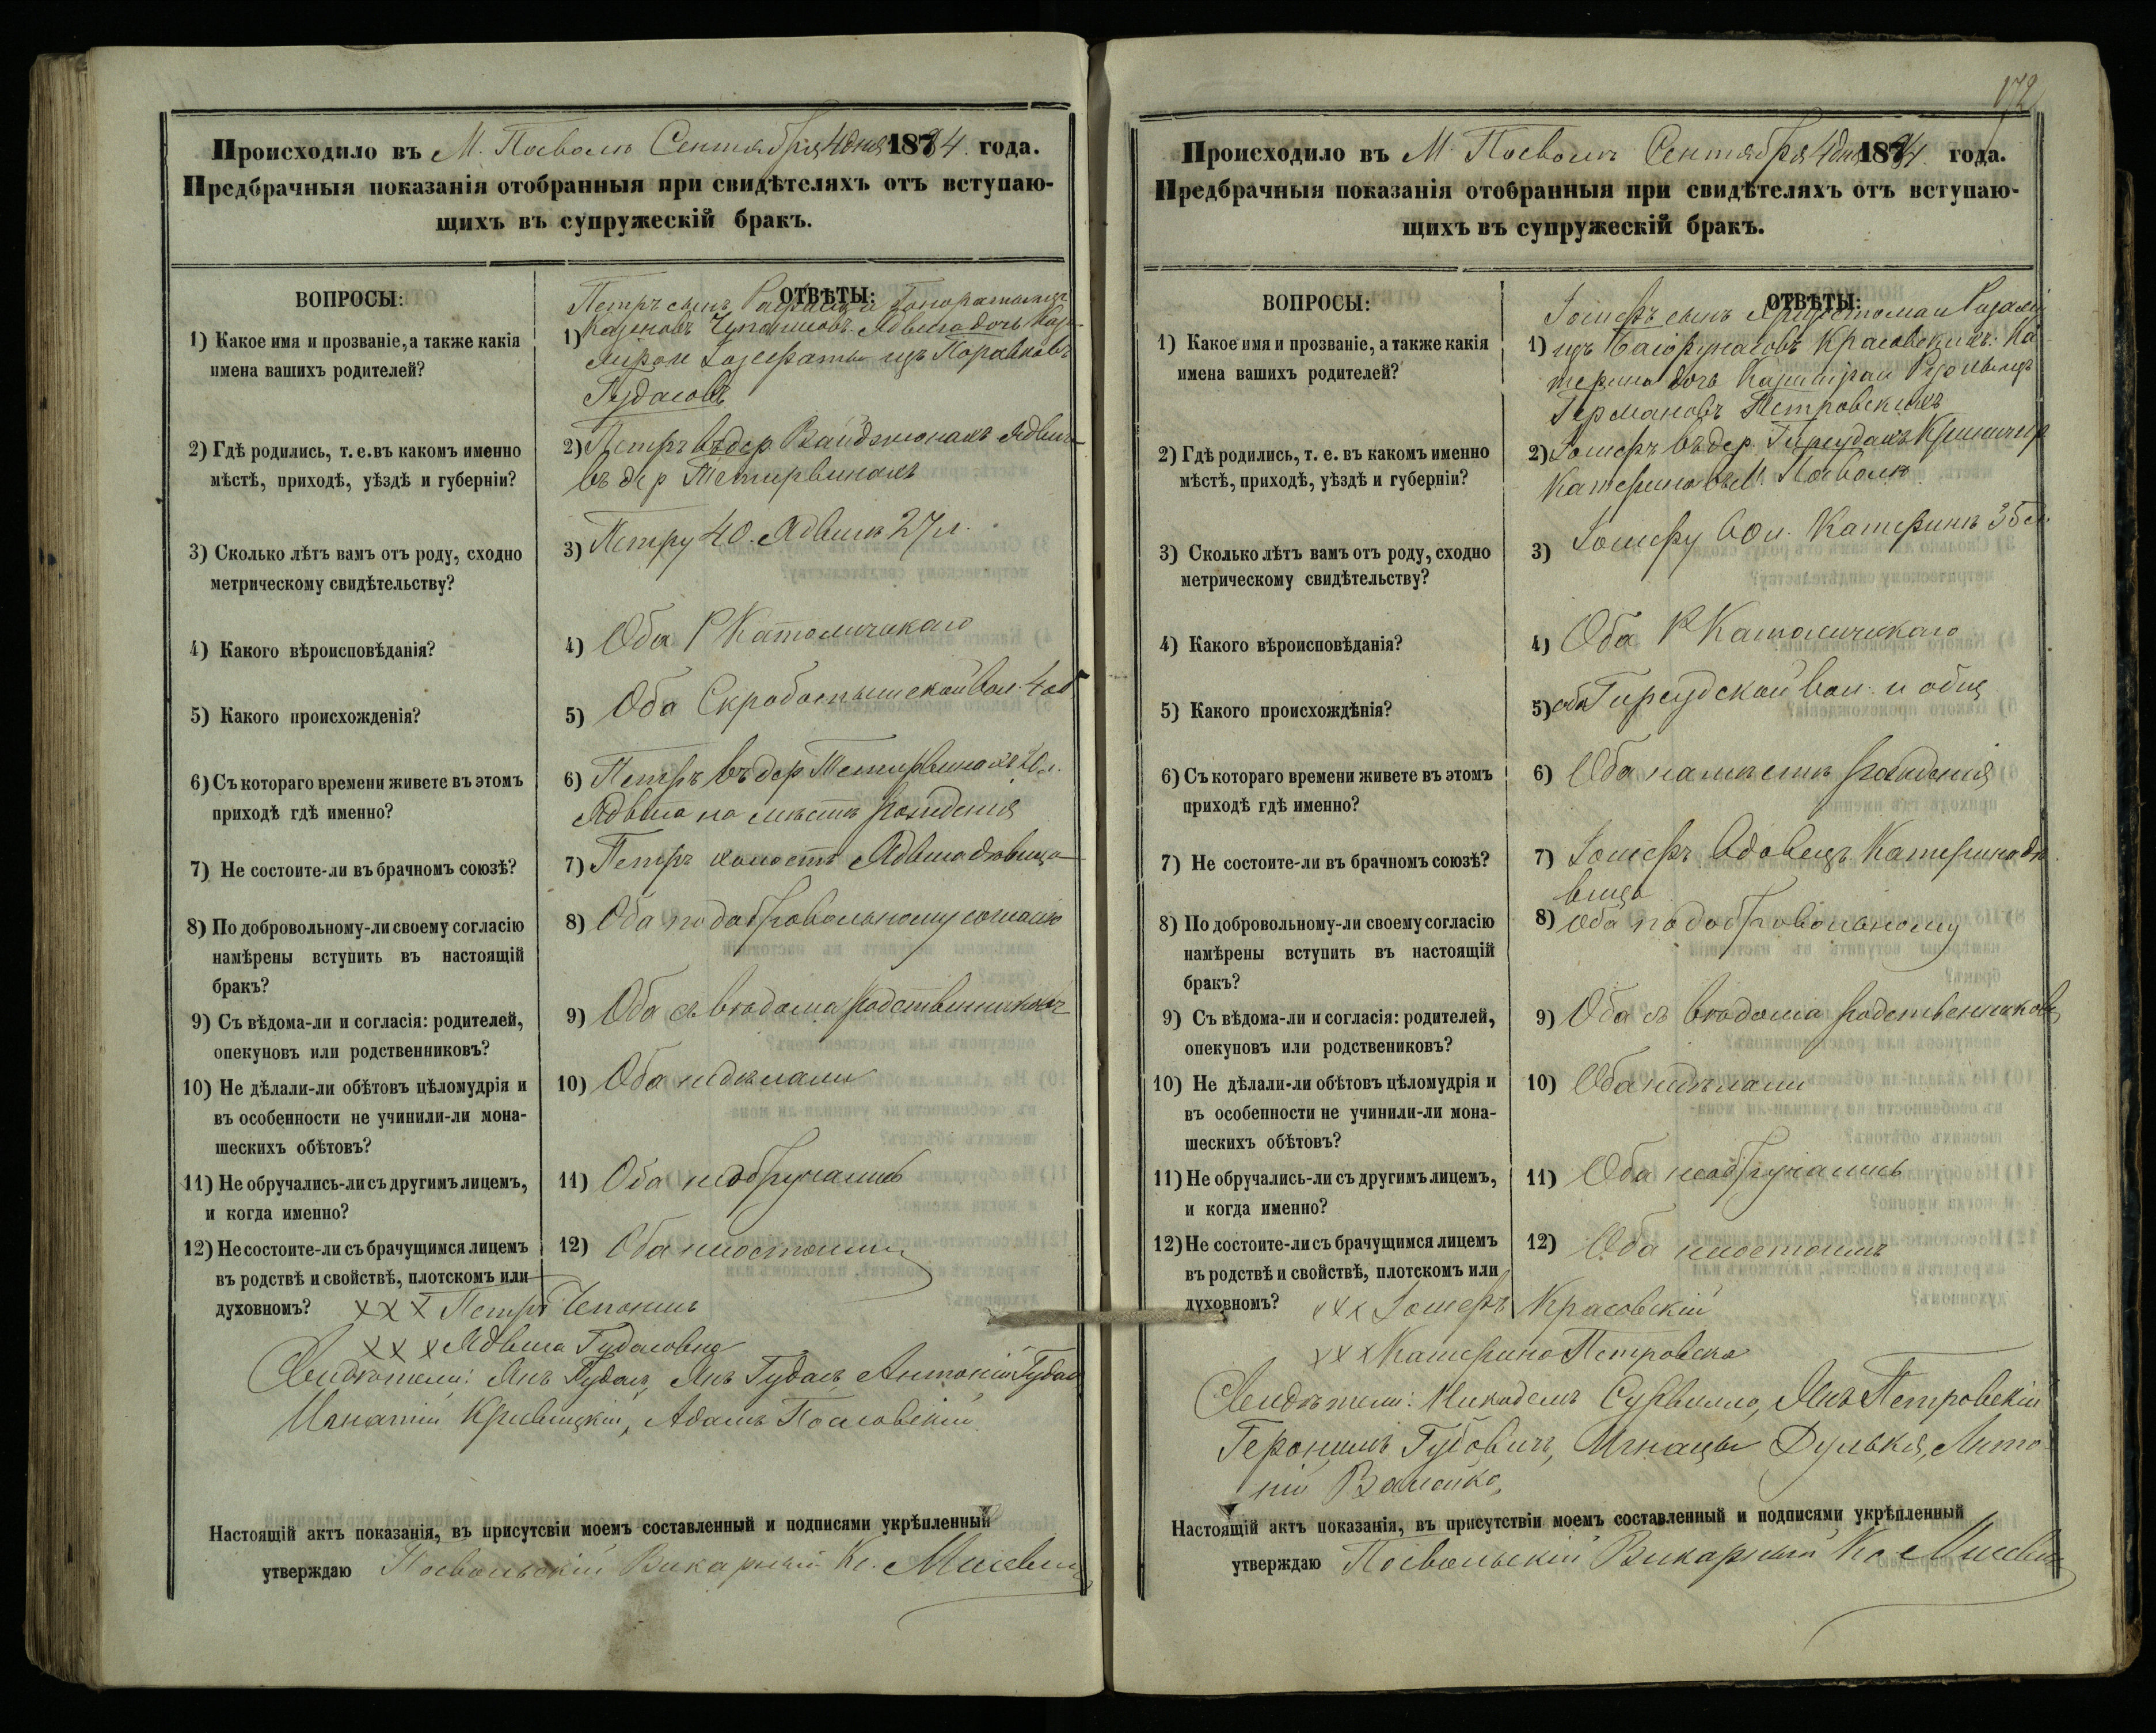 Происходило въ М. Посволь Сентября 4 дня 1884. года.
Предбрачныя показанія отобранныя при свидѣтеляхъ отъ вступаю-
щихъ въ супружескій бракъ.
ВОПРОСЫ:
ОТВѢТЫ:
1) Какое имя и прозваніе, а также какія
имена вашихъ родителей?
Петръ сынъ
1) Ядвига дочь Кази-
изъ
Гудасовъ
2) Гдѣ родились, т. е. въ какомъ именно
мѣстѣ, приходѣ, уѣздѣ и губерніи?
2) Петръ въ дер Вайдзюнахъ Ядвига
въ дер Тетирвинахъ
3) Сколько лѣтъ вамъ отъ роду, сходно
метрическому свидѣтельству?
3) Петру 40. Ядвигѣ 27 л.
4) Какого вѣроисповѣданія?
4) Оба Р Католическаго
5) Какого происхожденія?
5) Оба вол.
6) Съ котораго времени живете въ этомъ
приходѣ гдѣ именно?
6) Петръ въ дер Тетирвинахъ
Ядвига на мѣстѣ рожденія
7) Не состоите-ли въ брачномъ союзѣ?
7) Петръ холостъ Ядвига дѣвица
8) По добровольному-ли своему согласію
намѣрены вступить въ настоящій
бракъ?
8) Оба по добровольному согласію
9) Съ вѣдома-ли и согласія: родителей,
опекуновъ или родственниковъ?
9) Оба съ вѣдома родственниковъ
10) Не дѣлали-ли обѣтовъ цѣломудрія и
въ особенности не учинили-ли мона-
шескихъ обѣтовъ?
10) Оба недѣлали
11) Не обручались-ли съ другимъ лицемъ,
и когда именно?
11) Оба необручались
12) Не состоите-ли съ брачущимся лицемъ
въ родствѣ и свойствѣ, плотскомъ или
духовномъ?
12) Оба несостоимъ
х х х Петръ
х х х Ядвига Гудасовна
Свидѣтели: Янъ Гудасъ, Янъ Гудасъ, Антоній Гудас
Игнатій Кривицкій, Адамъ
Настоящій актъ показанія, въ присутсвіи моемъ составленный и подписями укрѣпленный
утверждаю Посвольскій Викарный Кс.
Происходило въ М. Посволь Сентября 4 дня 1884. года.
Предбрачныя показанія отобранныя при свидѣтеляхъ отъ вступаю-
щихъ въ супружескій бракъ.
ВОПРОСЫ:
ОТВѢТЫ:
1) Какое имя и прозваніе, а также какія
имена вашихъ родителей?
сынъ
1) изъ Красовскихъ: Ка-
терина дочь Казиміра и
Германовъ Петровскихъ
2) Гдѣ родились, т. е. въ какомъ именно
мѣстѣ, приходѣ, уѣздѣ и губерніи?
2) въ дер.
Катерина въ М. Посволь
3) Сколько лѣтъ вамъ отъ роду, сходно
метрическому свидѣтельству?
3) 60 л. Катеринѣ 35 л.
4) Какого вѣроисповѣданія?
4) Оба Р Католическаго
5) Какого происхождѣнія?
5) оба Гирсудской вол. и общ
6) Съ котораго времени живете въ этомъ
приходѣ гдѣ именно?
6) Оба на мѣстѣ рожденія
7) Не состоите-ли въ брачномъ союзѣ?
7) вдовецъ Катерина дѣ-
вица
8) По добровольному-ли своему согласію
намѣрены вступить въ настоящій
бракъ?
8) Оба по добровольному
9) Съ вѣдома-ли и согласія: родителей,
опекуновъ или родствениковъ?
9) Оба съ вѣдома родственниковъ
10) Не дѣлали-ли обѣтовъ цѣломудрія и
въ особенности не учинили-ли мона-
шескихъ обѣтовъ?
10) Оба недѣлали
11) Не обручались-ли съ другимъ лицемъ,
и когда именно?
11) Оба необручались
12) Не состоите-ли съ брачущимся лицемъ
въ родствѣ и свойствѣ, плотскомъ или
духовномъ?
12) Оба несостоимъ
х х х Красовскій
х х х Катерина Петровска
Свидѣтели: Никодемъ Сурвилло, Янъ Петровскій
Геронимъ Гутовичъ, Игнацы Дулькя, Анто-
ній
Настоящій актъ показанія, въ присутствіи моемъ составленный и подписями укрѣпленный
утверждаю Посвольскій Викарный Кс